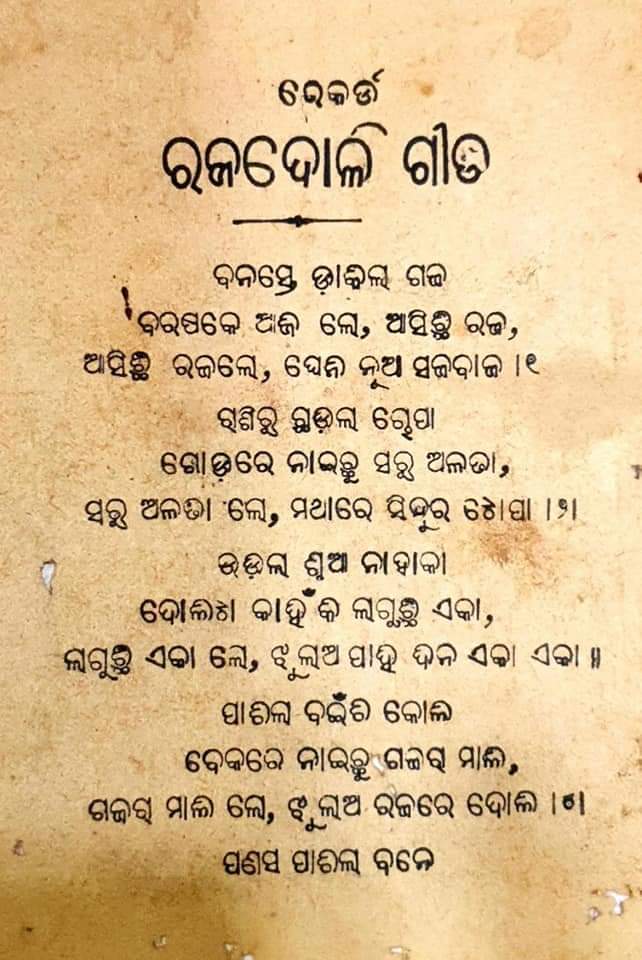 ରେକର୍ଡ
ରଜଦୋଳି ଗୀତ
ବନସ୍ତେ ଡାକିଲା ଗଜ
ବରଷକେ ଆଜ ଲେ, ଆସିଚ୍ଛି ରଜ,
ଆସିଚ୍ଛି ରଜଲେ, ଘେନ ନୂଆ ସଜବାଜ ।୧
ରାଶିରୁ ଛଡ଼ାଲ ଚୋପା
ଗୋଡ଼ରେ ନାଇଚ୍ଛୁ ସରୁ ଅଳତା,
ସରୁ ଅଳତା ଲେ, ମଥାରେ ସିନ୍ଦୂର ଟୋପା ।୨।
ଉଡ଼ିଲା ଶୁଆ ନାହାକା
ଦୋଳିଟା କାହିଁକି ଲଗୁଚ୍ଛି ଏକା,
ଲଗୁଚ୍ଛି ଏକା ଲେ, ଝୁଲୁଥ ପାହି ଦିନ ଏକା ଏକା ॥
ପାଚିଲା ବଇଁଚି କୋଳି
ବେକରେ ନାଇଚ୍ଛୁ ଗଜରା ମାଳି,
ଗଜରା ମାଳି ଲେ, ଝୁଲୁଥ ରଜରେ ଦୋଳି ।୪।
ପଣସ ପାଚିଲା ବନେ